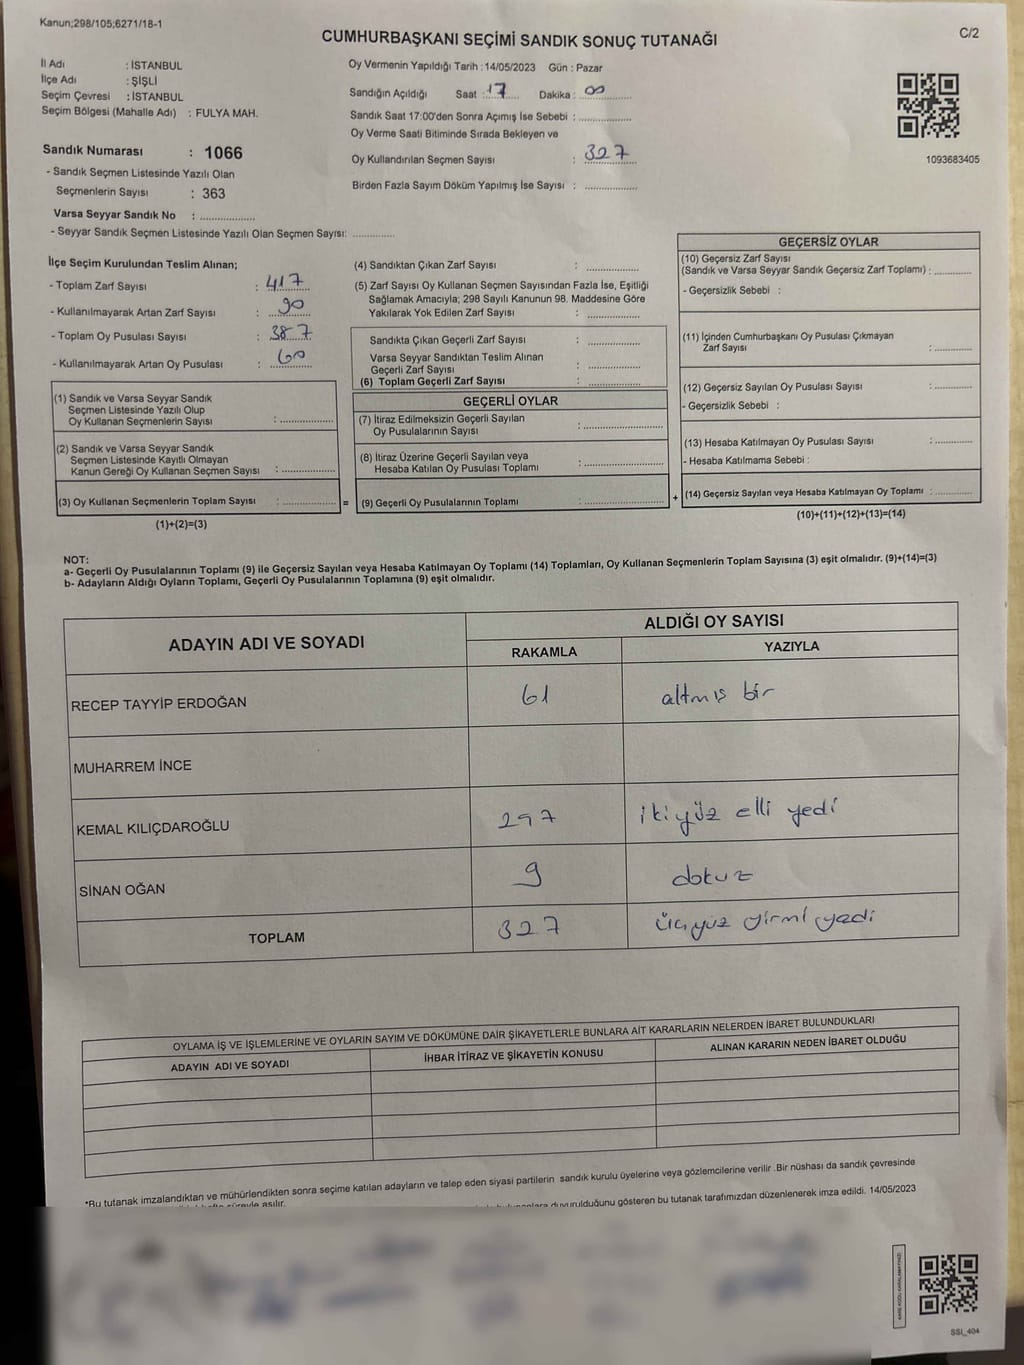 Kanun;298/105;6271/18-1
C/2
CUMHURBAŞKANI SEÇİMİ SANDIK SONUÇ TUTANAĞI
İl Adı : İSTANBUL
İlçe Adı : ŞİŞLİ
Seçim Çevresi : İSTANBUL
Seçim Bölgesi (Mahalle Adı) : FULYA MAH.
Sandık Numarası : 1066
- Sandık Seçmen Listesinde Yazılı Olan
Seçmenlerin Sayısı : 363
Varsa Seyyar Sandık No : ................
- Seyyar Sandık Seçmen Listesinde Yazılı Olan Seçmen Sayısı: ............
Oy Vermenin Yapıldığı Tarih : 14/05/2023 Gün : Pazar
Sandığın Açıldığı Saat : 17 Dakika : 00
Sandık Saat 17:00'den Sonra Açımış İse Sebebi : ................
Oy Verme Saati Bitiminde Sırada Bekleyen ve
Oy Kullandırılan Seçmen Sayısı : 327
Birden Fazla Sayım Döküm Yapılmış İse Sayısı : ................
1093683405
İlçe Seçim Kurulundan Teslim Alınan;
- Toplam Zarf Sayısı : 417
- Kullanılmayarak Artan Zarf Sayısı : 90
- Toplam Oy Pusulası Sayısı : 387
- Kullanılmayarak Artan Oy Pusulası : 60
(1) Sandık ve Varsa Seyyar Sandık
Seçmen Listesinde Yazılı Olup
Oy Kullanan Seçmenlerin Sayısı : ................
(2) Sandık ve Varsa Seyyar Sandık
Seçmen Listesinde Kayıtlı Olmayan
Kanun Gereği Oy Kullanan Seçmen Sayısı : ................
(3) Oy Kullanan Seçmenlerin Toplam Sayısı : ................ =
(1)+(2)=(3)
(4) Sandıktan Çıkan Zarf Sayısı : ................
(5) Zarf Sayısı Oy Kullanan Seçmen Sayısından Fazla İse, Eşitliği
Sağlamak Amacıyla; 298 Sayılı Kanunun 98. Maddesine Göre
Yakılarak Yok Edilen Zarf Sayısı : ................
Sandıkta Çıkan Geçerli Zarf Sayısı : ................
Varsa Seyyar Sandıktan Teslim Alınan
Geçerli Zarf Sayısı : ................
(6) Toplam Geçerli Zarf Sayısı : ................
GEÇERLİ OYLAR
(7) İtiraz Edilmeksizin Geçerli Sayılan
Oy Pusulalarının Sayısı : ................
(8) İtiraz Üzerine Geçerli Sayılan veya
Hesaba Katılan Oy Pusulası Toplamı : ................
(9) Geçerli Oy Pusulalarının Toplamı : ................ +
GEÇERSİZ OYLAR
(10) Geçersiz Zarf Sayısı
(Sandık ve Varsa Seyyar Sandık Geçersiz Zarf Toplamı) : ............
- Geçersizlik Sebebi :
(11) İçinden Cumhurbaşkanı Oy Pusulası Çıkmayan
Zarf Sayısı : ............
(12) Geçersiz Sayılan Oy Pusulası Sayısı : ............
- Geçersizlik Sebebi :
(13) Hesaba Katılmayan Oy Pusulası Sayısı : ............
- Hesaba Katılmama Sebebi :
(14) Geçersiz Sayılan veya Hesaba Katılmayan Oy Toplamı : ............
(10)+(11)+(12)+(13)=(14)
NOT:
a- Geçerli Oy Pusulalarının Toplamı (9) ile Geçersiz Sayılan veya Hesaba Katılmayan Oy Toplamı (14) Toplamları, Oy Kullanan Seçmenlerin Toplam Sayısına (3) eşit olmalıdır. (9)+(14)=(3)
b- Adayların Aldığı Oyların Toplamı, Geçerli Oy Pusulalarının Toplamına (9) eşit olmalıdır.
ADAYIN ADI VE SOYADI
ALDIĞI OY SAYISI
RAKAMLA YAZIYLA
RECEP TAYYİP ERDOĞAN 61 altmış bir
MUHARREM İNCE
KEMAL KILIÇDAROĞLU 297 ikiyüz elli yedi
SİNAN OĞAN 9 dokuz
TOPLAM 327 üçyüz yirmi yedi
OYLAMA İŞ VE İŞLEMLERİNE VE OYLARIN SAYIM VE DÖKÜMÜNE DAİR ŞİKAYETLERLE BUNLARA AİT KARARLARIN NELERDEN İBARET BULUNDUKLARI
ADAYIN ADI VE SOYADI İHBAR İTİRAZ VE ŞİKAYETİN KONUSU ALINAN KARARIN NEDEN İBARET OLDUĞU
*Bu tutanak imzalandıktan ve mühürlendikten sonra seçime katılan adayların ve talep eden siyasi partilerin sandık kurulu üyelerine veya gözlemcilerine verilir .Bir nüshası da sandık çevresinde
süreyle asılır. duyurulduğunu gösteren bu tutanak tarafımızdan düzenlenerek imza edildi. 14/05/2023
SSI_404